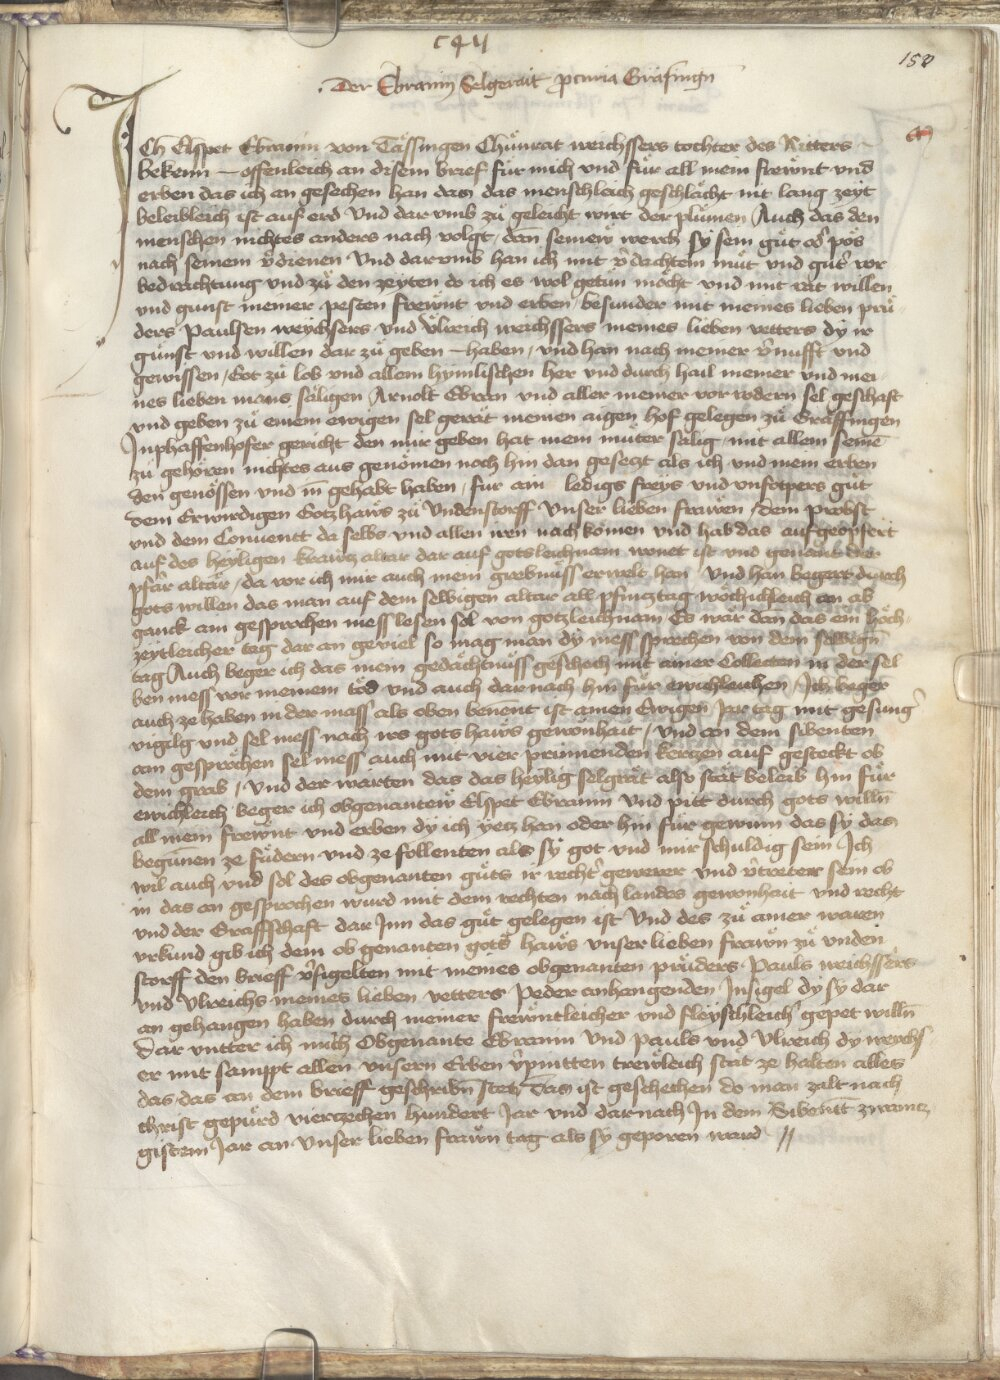 c4ij
152
Der Ebranin Selgerait pro curia Gräfingn
Ich Elspet Ebranin von Tässingen Chünrat weichssers tochter des Ritters
bekenn offenleich an disem brief für mich vnd für all mein frewnt vnd
erben das ich an gesechen han das das menschleich geschlächt nit lang zeyt
beleibleich ist auf erd Vnd dar vmb zü geleicht wirt der plümen Auch das den
menschen nichtes anders nach volgt dan seinew werch sy sein güt oder pös
nach seinem verdienen Vnd darumb han ich mit verdachtem müt vnd güter vor
bedrachtung vnd zü den zeyten do ich es wol getün möcht vnd mit rät willen
vnd gunst meiner pesten frewnt vnd erben besunder mit meines lieben prü
ders Paulsen weychsers vnd Vlreich weichssers meines lieben vetters dy ir
gunst vnd willen dar zü geben haben vnd han nach meiner vernufft vnd
gewissen Got zü lob vnd allem hymlischen her vnd durch hail meiner vnd mei
nes lieben mans säligen Arnolt Ebran vnd aller meiner vor vodern sel geschaft
vnd geben zü einem ewigen sel gerät meinen aigen hof gelegen zü Gräffingen
Inphaffenhofer gericht den mir geben hat mein müter sälig mit allem seinem
zü gehören nichtes aus genömen noch hin dan gesetzt als ich vnd mein erben
den genössen vnd in gehabt haben für ain ledigs freys vnd vnfotpers güt
dem Erwirdigen Gotzhaws zü Vndenstorff Vnser lieben frawen dem probst
vnd dem Conuentt da selbs vnd allen iren nach komen vnd hab das aufgeopfert
auf des heyligen krawtz altar dar auf gotsleichnam wonet ist vnd genant der
pfarr altär da vor ich mir auch mein grebnüss erwelt han Vnd han begert durch
gots willen das man auf dem selbigen altar all pfincztag wöchichleich an ab
ganck ain gesprochen mess lesen sol von gotzleichnam Es wär dan das ein höch
zeytleicher tag dar an geviel so mag man dy mess sprechen von dem selbign
tag Auch beger ich das mein gedächtnüss geschech mit ainer Collecten in der sel
ben mess vor meinem töd vnd auch darnach hin für ewichleichen Ich beger
auch ze haben in der mass als oben benent ist ainen Ewigen Jartag mit gesungner
vigilg vnd sel mess nach irs gots haws gewonhait vnd an dem sibenten
ain gesprochen sel mess auch mit vier prinnenden kertzen auf gesteckt ob
dem grab Vnd der warten das das heylig selgrät also stät beleib hin für
ewichleich beger ich obgenantew Elspet Ebranin Vnd pitt durch gots willn
all mein frewnt vnd erben dy ich yetz han oder hin für gewinn das sy das
begunen ze fädern vnd ze follenten als sy got vnd mir schuldig sein Ich
wil auch vnd sol des obgenanten güts ir rechter gewerer vnd vertreter sein ob
in das an gesprochen wurd mit dem rechten nach landes gewonhait vnd recht
vnd der Graffschaft dar Jnn das güt gelegen ist Vnd des zü ainer waren
vrkund gib ich dem ob genanten gots haws vnser lieben frawn zü vnden
storff den brieff versigelten mit meines obgenanten prüders Pauls weichssers
vnd Vlreichs meines lieben vetters Peder anhangenden Insigel dy sy dar
an gehangen haben durch meiner frewntleicher vnd fleyschleicher gepet willn
dar vntter ich mich Obgenante Ebranin Vnd Pauls vnd Vlreich dy weychs
er mit sampt allen vnsern Erben verpintten trewleich stät ze halten alles
das das an dem brieff geschriben stet Das ist geschechen do man zalt nach
christ gepürd vierzechen hundert Jar vnd darnach In dem Sibentt zwaintz
gistem Jar an Vnser lieben frawn tag als sy geporen ward